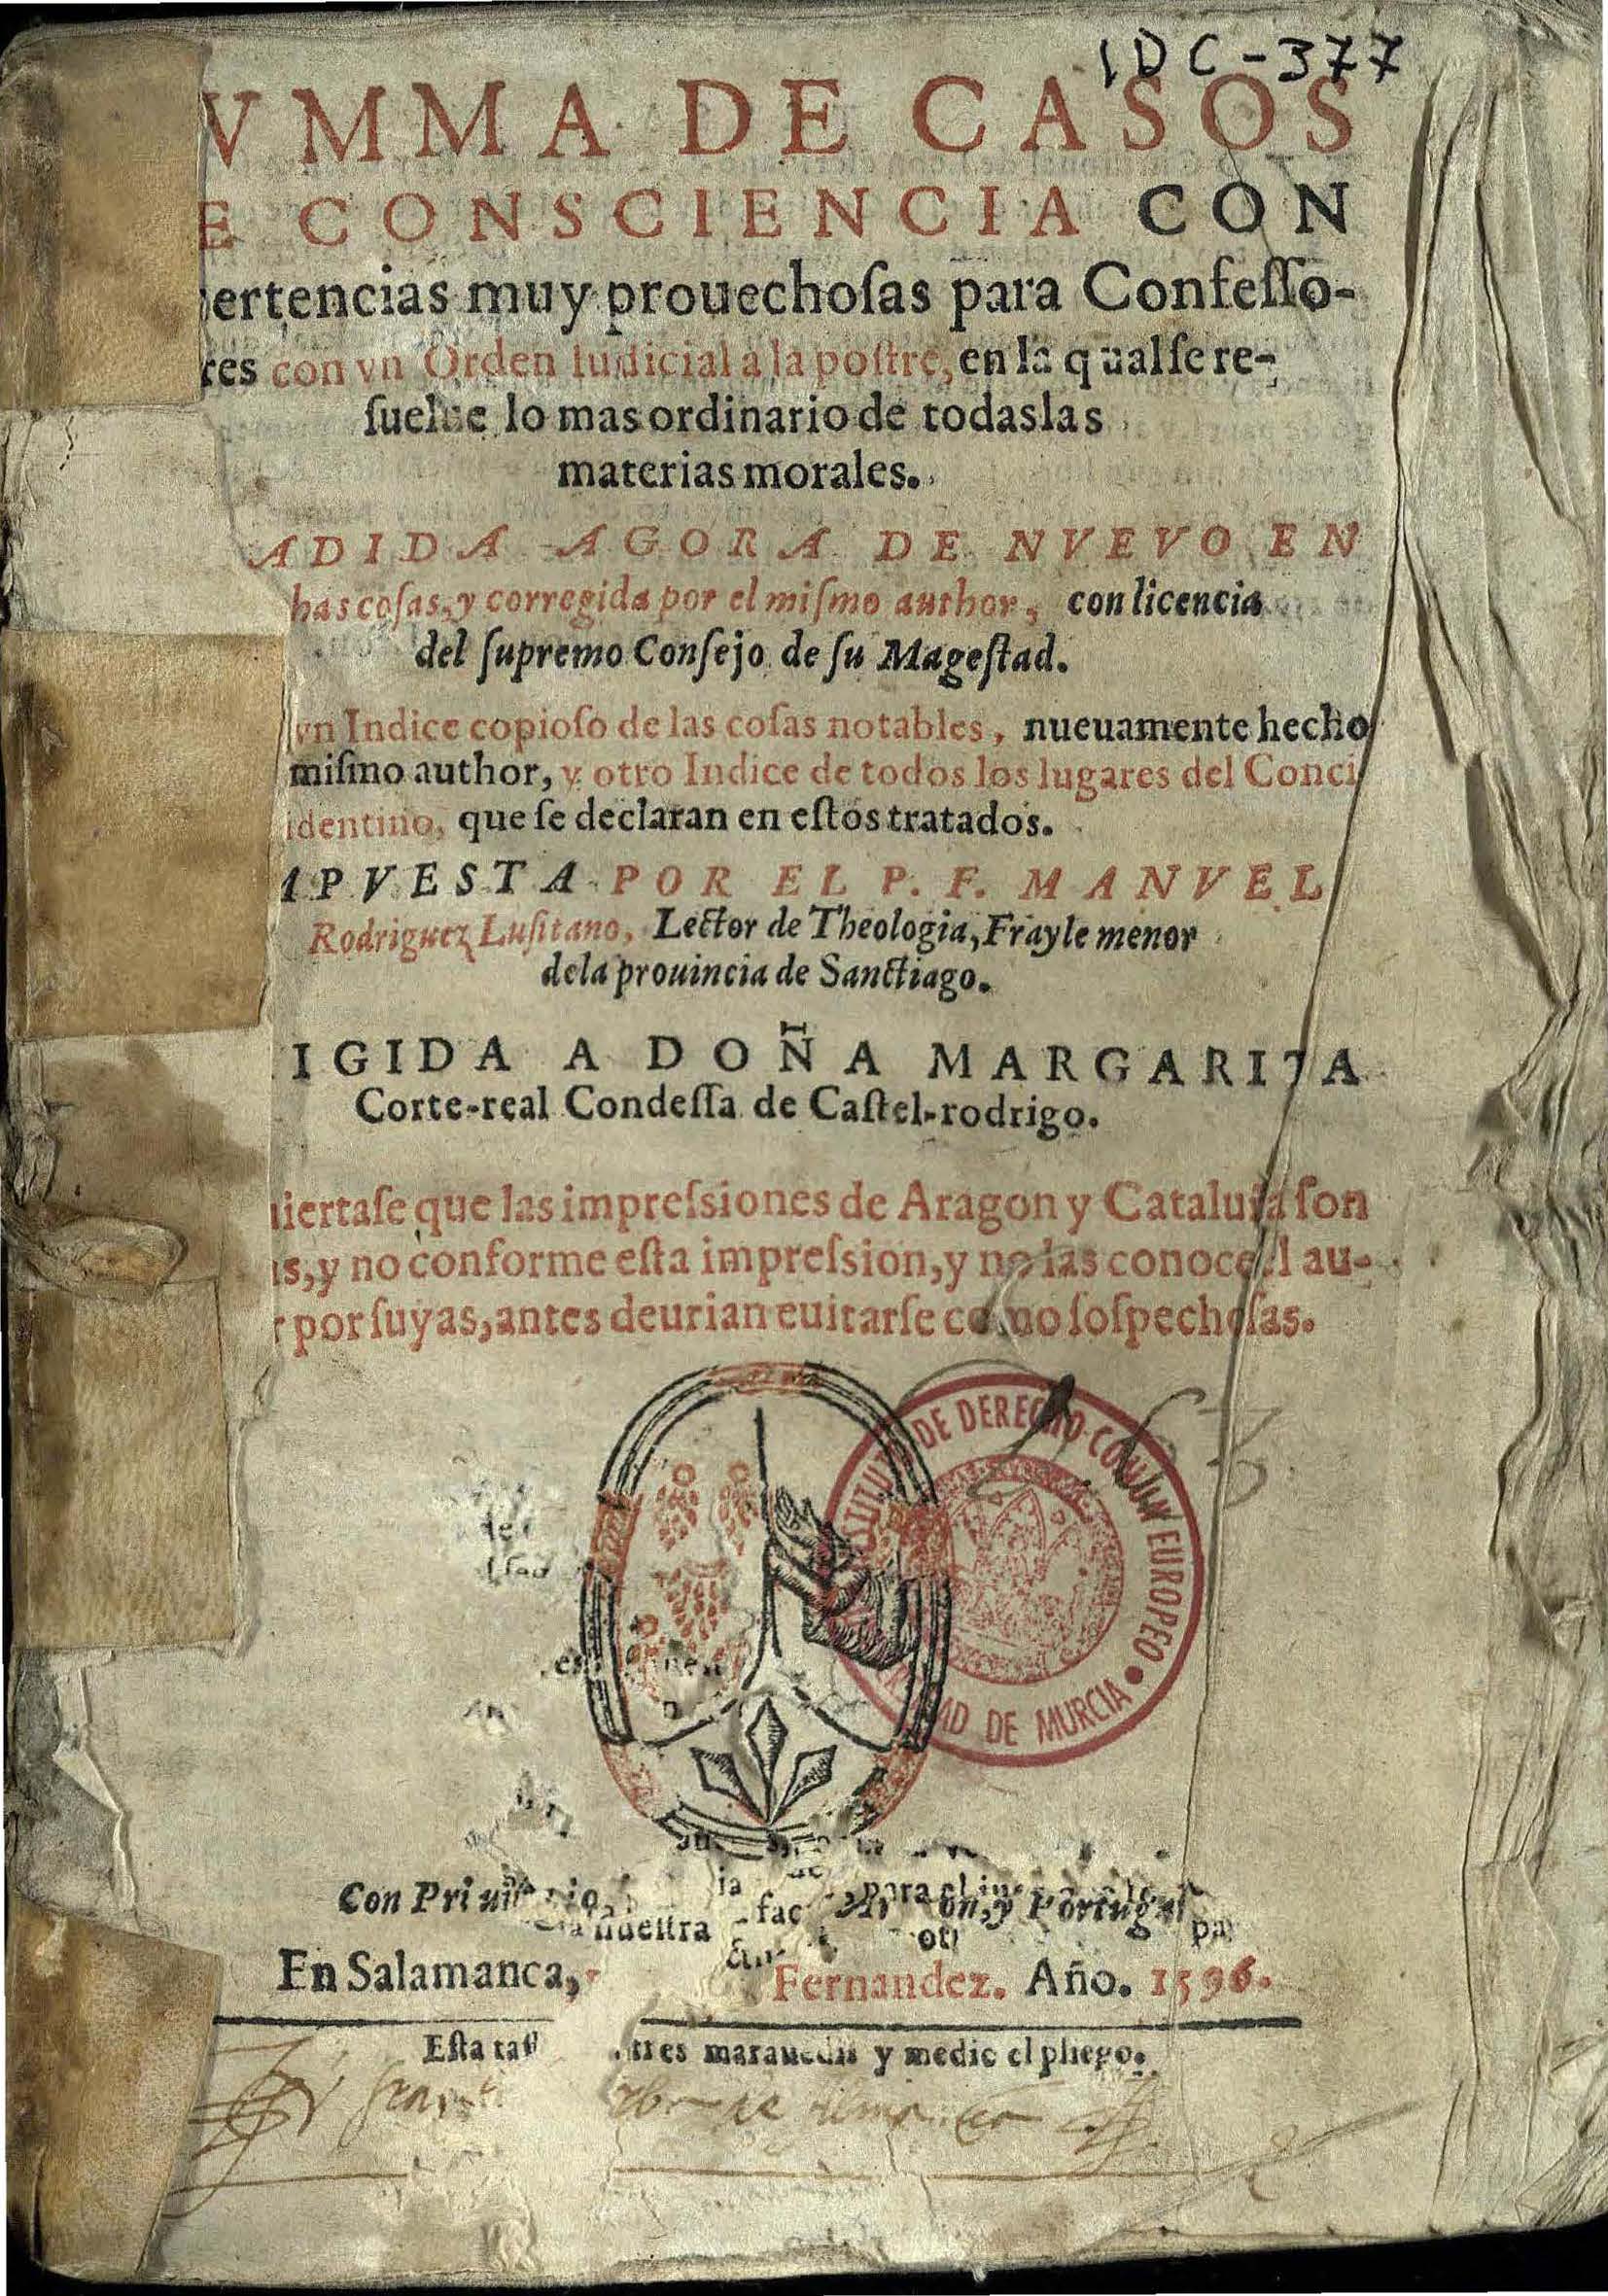 IDC-377
VMMA DE CASOS
E CONSCIENCIA CON
ertencias muy prouechoſas para Confeſſo-
res con vn Orden Iudicial a la poſtre, en la qual ſe re-
ſuelue lo mas ordinario de todas las
materias morales.
ADIDA AGORA DE NVEVO EN
has coſas, y corregida por el miſmo author, con licencia
del ſupremo Conſejo de ſu Mageſtad.
vn Indice copioſo de las coſas notables, nueuamente hecho
miſmo author, y otro Indice de todos los lugares del Conci
identino, que ſe declaran en eſtos tratados.
PVESTA POR EL P. F. MANVEL
Rodriguez Luſitano, Lector de Theologia, Frayle menor
de la prouincia de Sanctiago.
IGIDA A DOÑA MARGARITA
Corte-real Condeſſa de Caſtel-rodrigo.
uiertaſe que las impreſsiones de Aragon y Cataluña ſon
as, y no conforme eſta impreſsion, y no las conoce el au-
r por ſuyas, antes deurian euitarſe como ſoſpechoſas.
DE DERECHO COMUN EUROPEO
DE MURCIA
Con y Portugal
nueſtra
En Salamanca, Fernandez. Año. 1596.
Eſta taſ tres marauedis y medio el pliego.